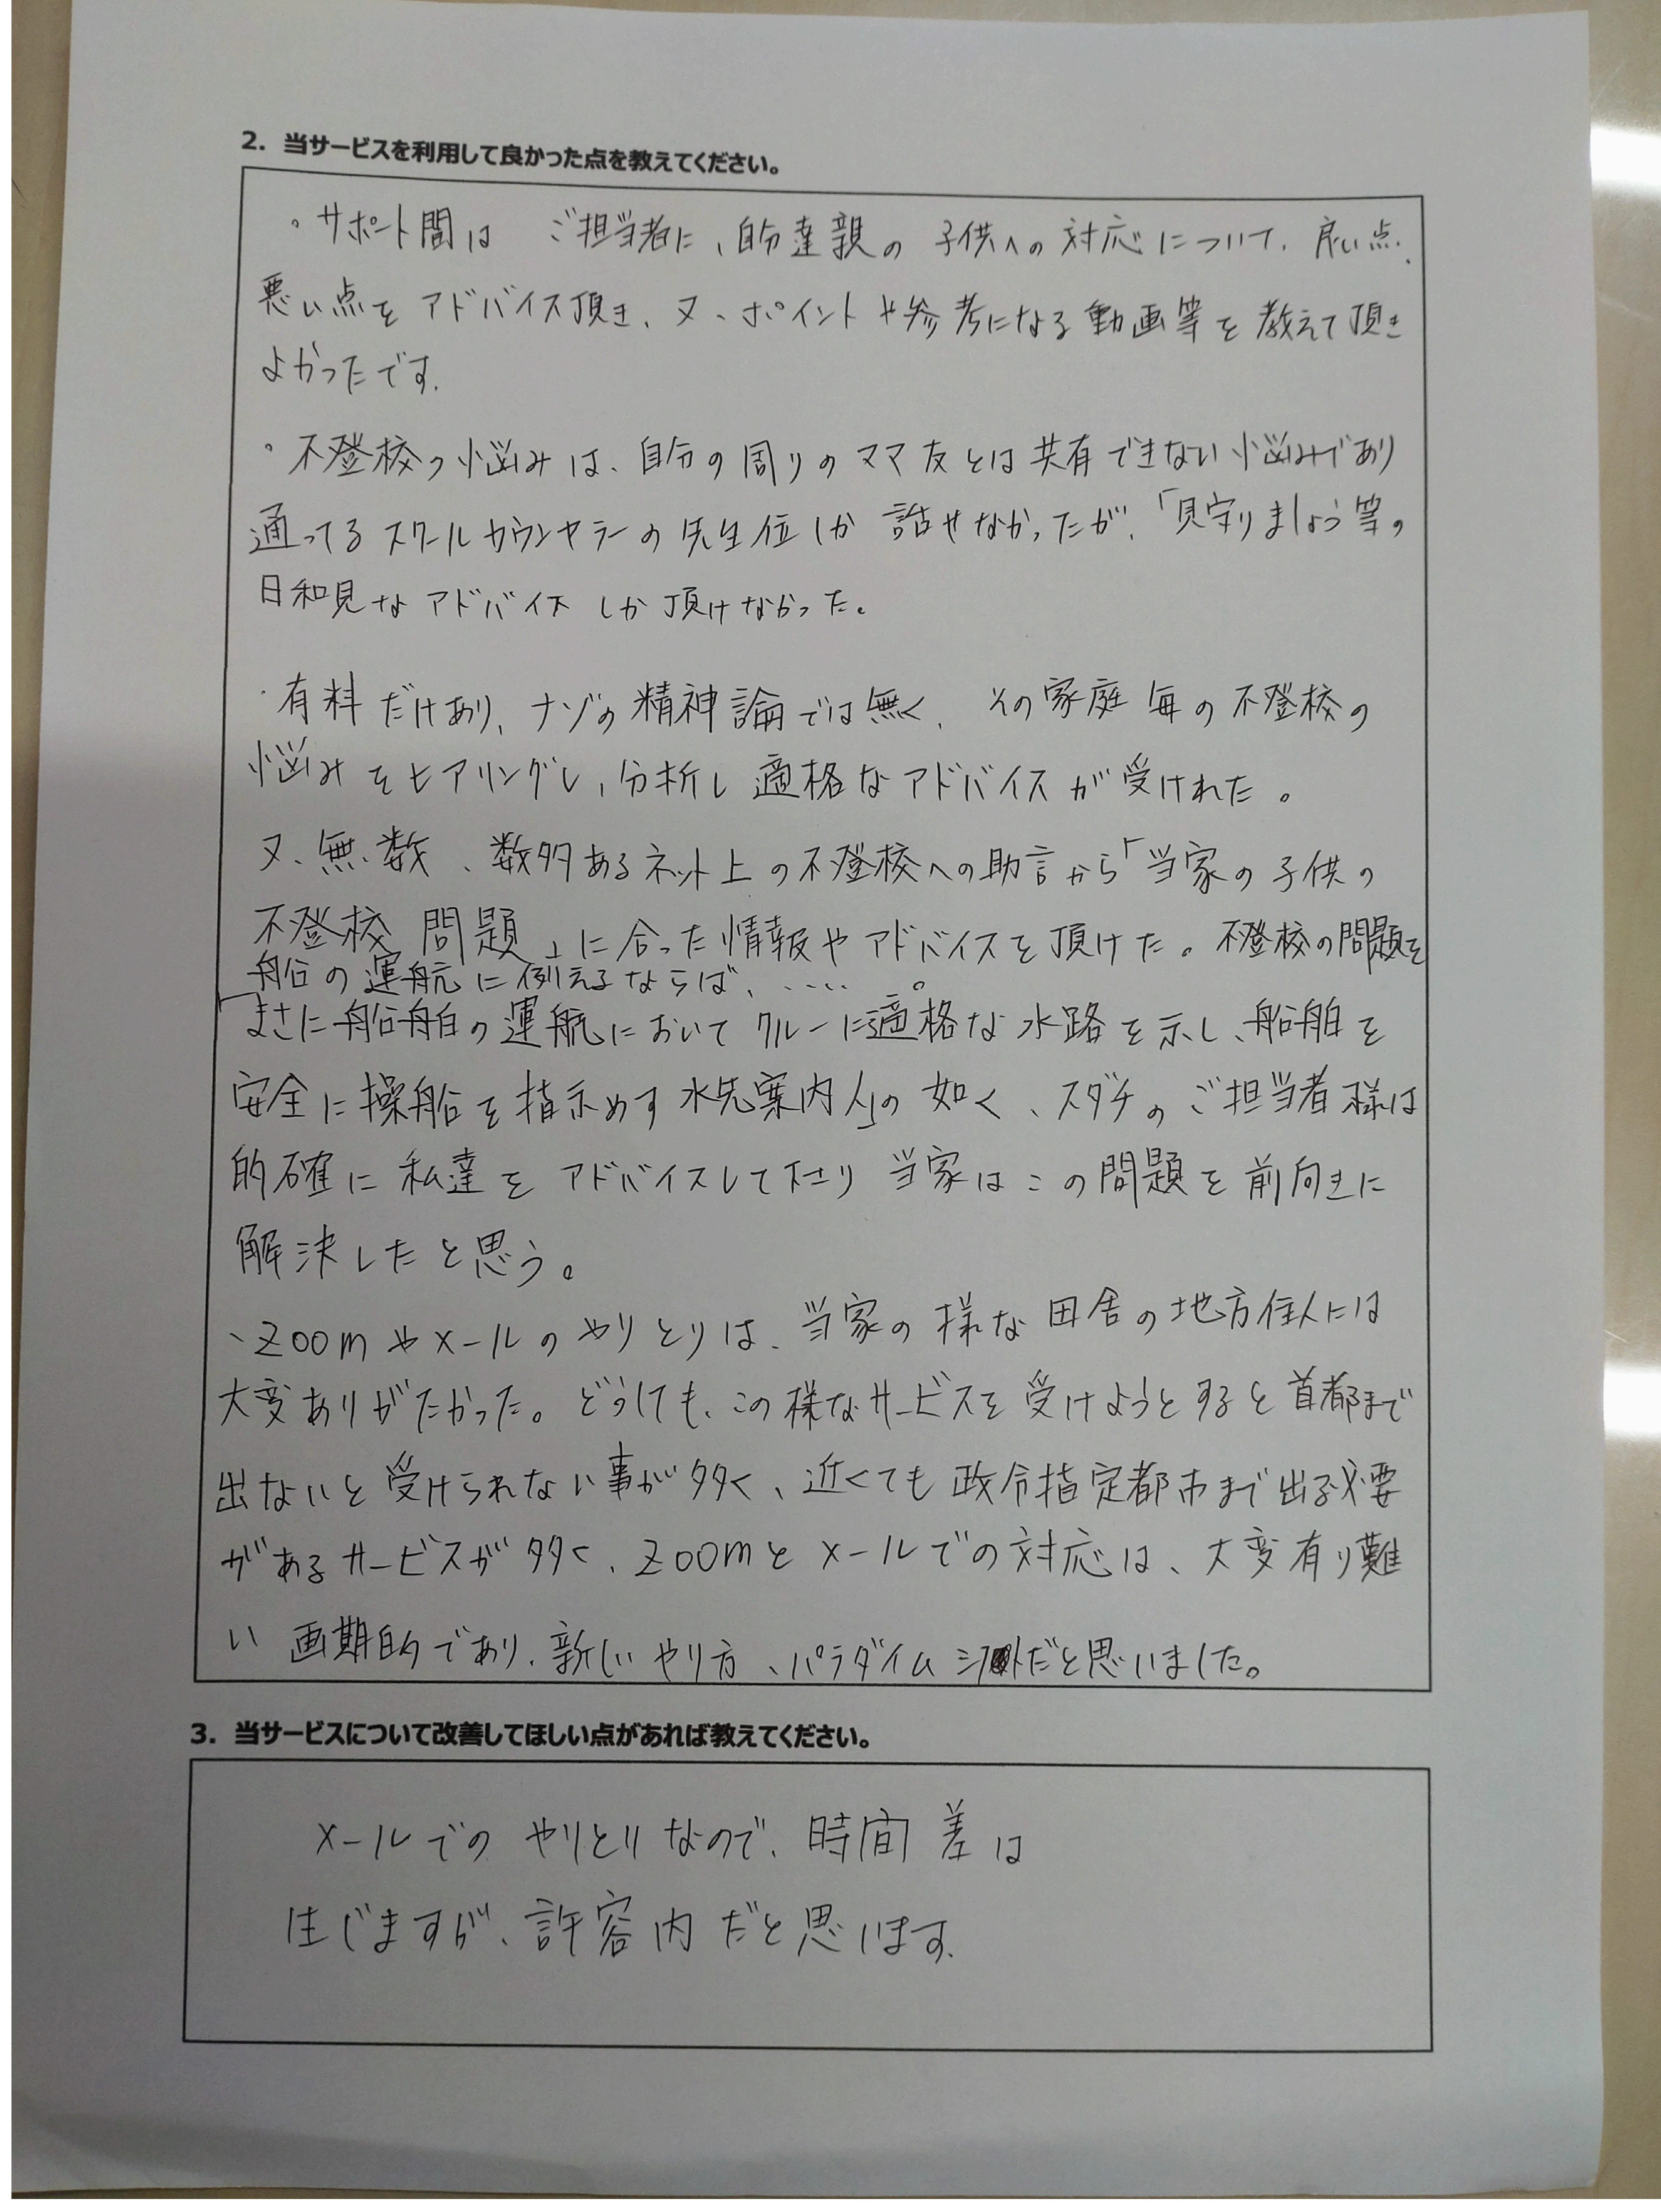 2. 当サービスを利用して良かった点を教えてください。
・サポート間は ご担当者に、自分達親の子供への対応について、良い点、
悪い点をアドバイス頂き、又、ポイントや参考になる動画等を教えて頂き
よかったです。
・不登校の悩みは、自分の周りのママ友とは共有できない悩みであり
通ってるスクールカウンセラーの先生位しか話せなかったが、「見守りましょう等の
日和見なアドバイスしか頂けなかった。
・有料だけあり、ナゾの精神論では無く、その家庭毎の不登校の
悩みをヒアリングし、分析し適格なアドバイスが受けれた。
又、無数、数多あるネット上の不登校への助言から「当家の子供の
不登校 問題」に合った情報やアドバイスを頂けた。不登校の問題を
船の運航に例えるならば、‥‥。
「まさに船舶の運航においてクルーに適格な水路を示し、船舶を
安全に操船を指示めす水先案内人」の如く、スダチのご担当者様は
的確に私達をアドバイスして下さり 当家はこの問題を前向きに
解決したと思う。
、zoomやメールのやりとりは、当家の様な田舎の地方住人には
大変ありがたかった。どうしても、この様なサービスを受けようとすると首都まで
出ないと受けられない事が多く、近くても政令指定都市まで出る必要
があるサービスが多く、zoomとメールでの対応は、大変有り難
い 画期的であり、新しいやり方、パラダイムシフトだと思いました。
3. 当サービスについて改善してほしい点があれば教えてください。
メールでのやりとりなので、時間差は
生じますが、許容内だと思います。